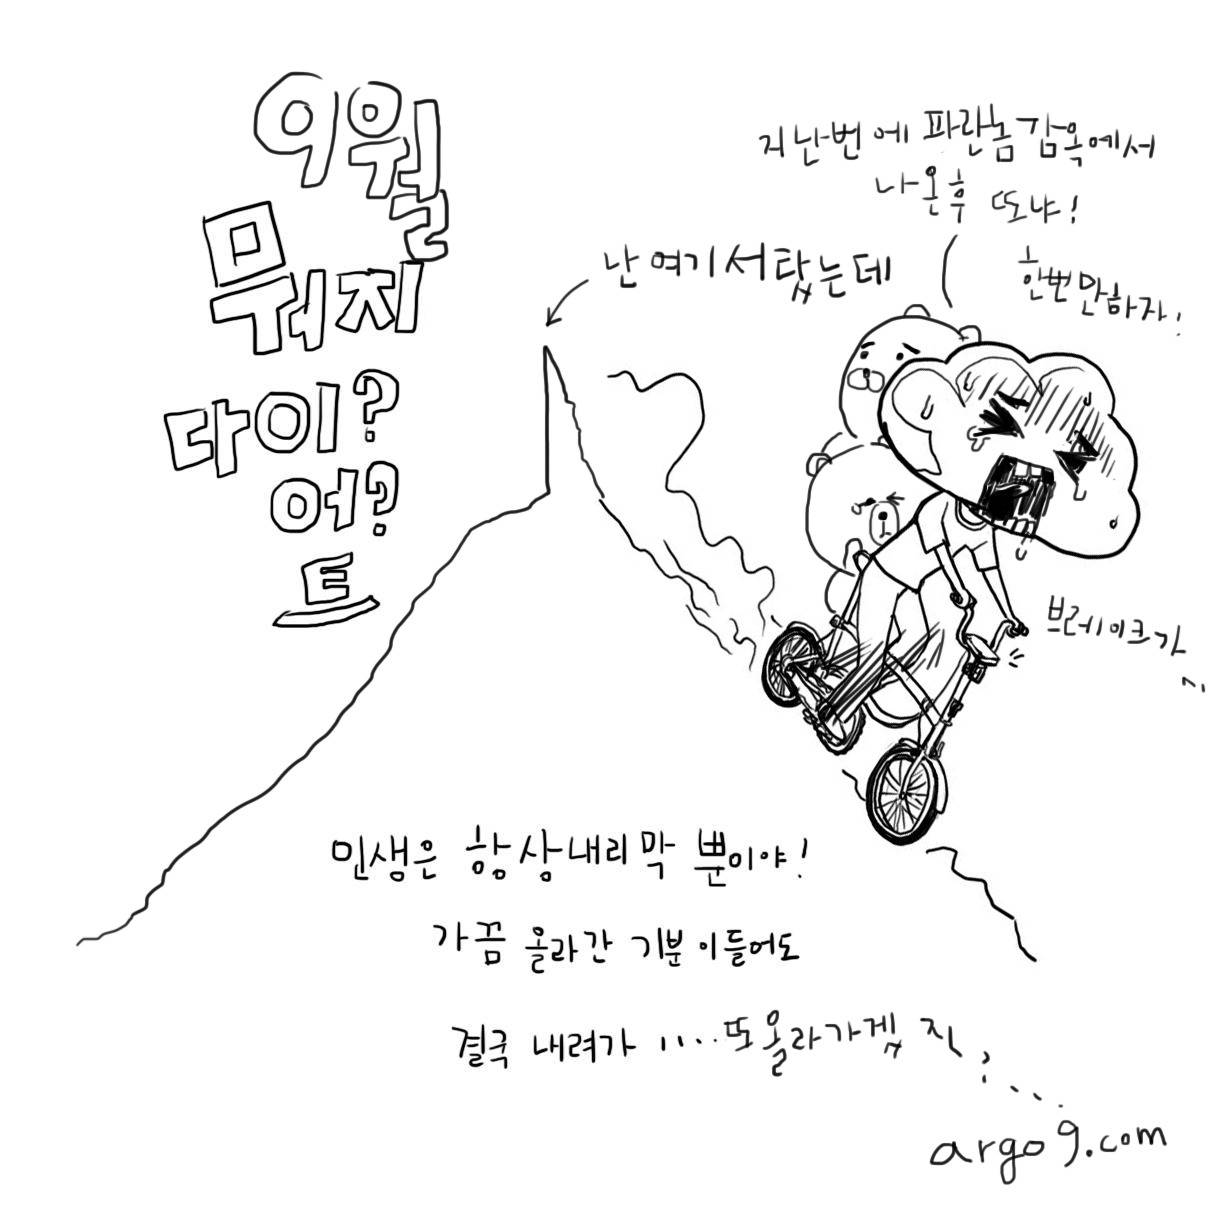 9월
뭐지
다이?
어?
트
지난번에 파란놈감옥에서
나온후 또냐!
한번만하자!
난 여기서탔는데
브레이크가
인생은 항상내리막 뿐이야!
가끔 올라간 기분이들어도
결국 내려가 .....또올라가겠지?...
argo9.com